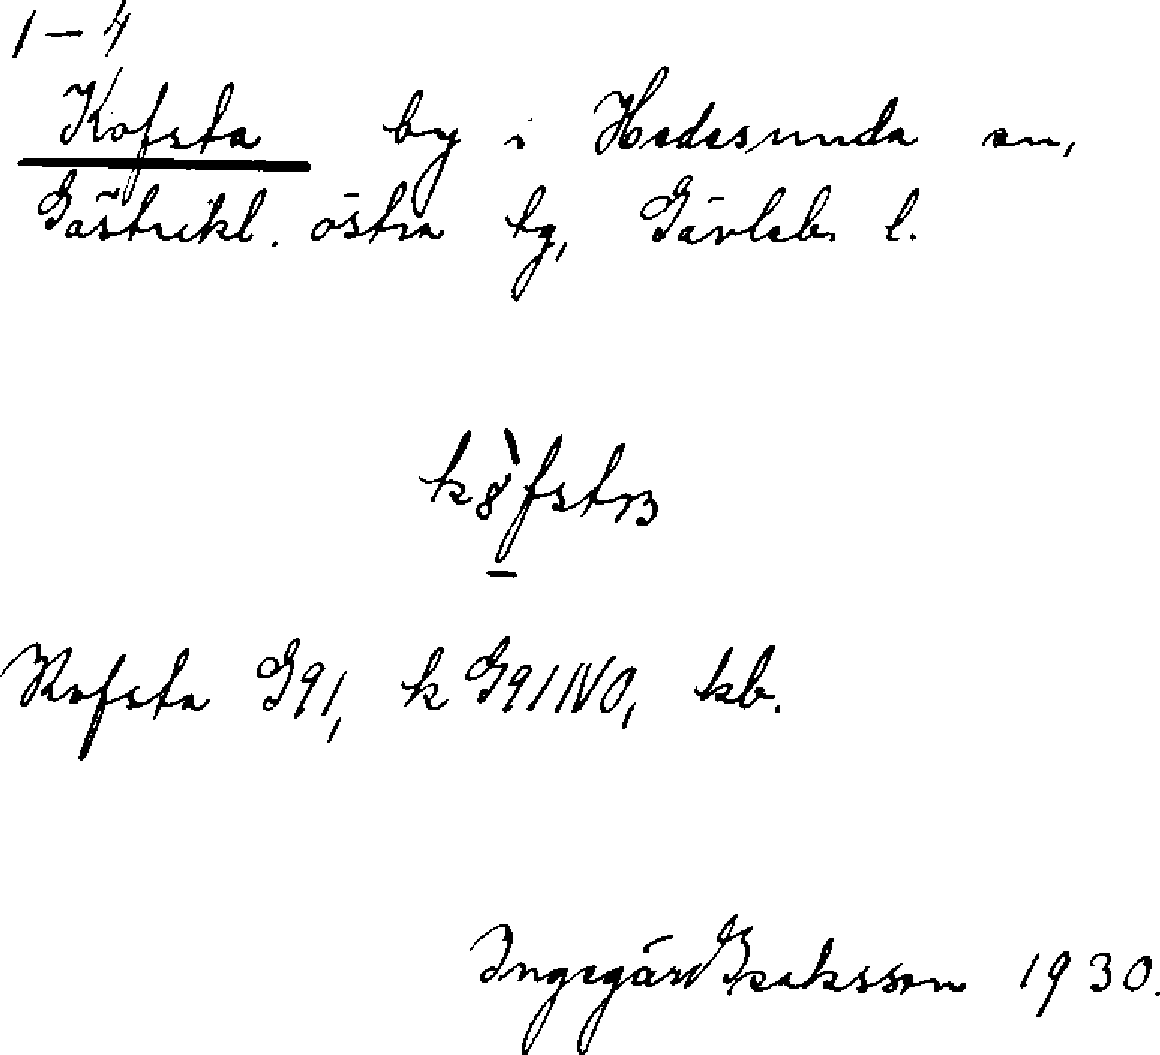 1–4
Kofsta by i Hedesunda sn,
Gästrikl. östra tg, Gävleb. l.
Kofsta G91, k G91NO, kb.
Ingegärd Isaksson 1930.